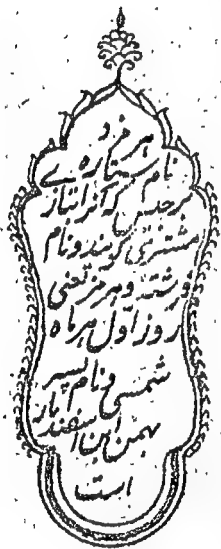 هرمزد
نام ستاره ے
که آنرا بتاز
مشتری گویند و نام
فرشته و هرمز یعنی
روز اول هر ماه
شمسی و نام پسر
بهمن ابن اسفندیار
است